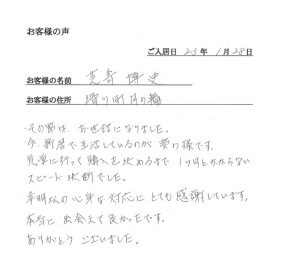 お客様の声
ご入居日 23年 1月 28日
お客様の名前 荒嵜 博史
お客様の住所 滑川町月の輪
その節は、お世話になりました。
今、新居で生活しているのが 夢の様です。
見学に行って 購入を決めるまで 1ヶ月とかからない
スピード決断でした。
幸明さんの心身な対応に とても 感謝しています。
本当に 出会えて良かったです。
ありがとう ございました。